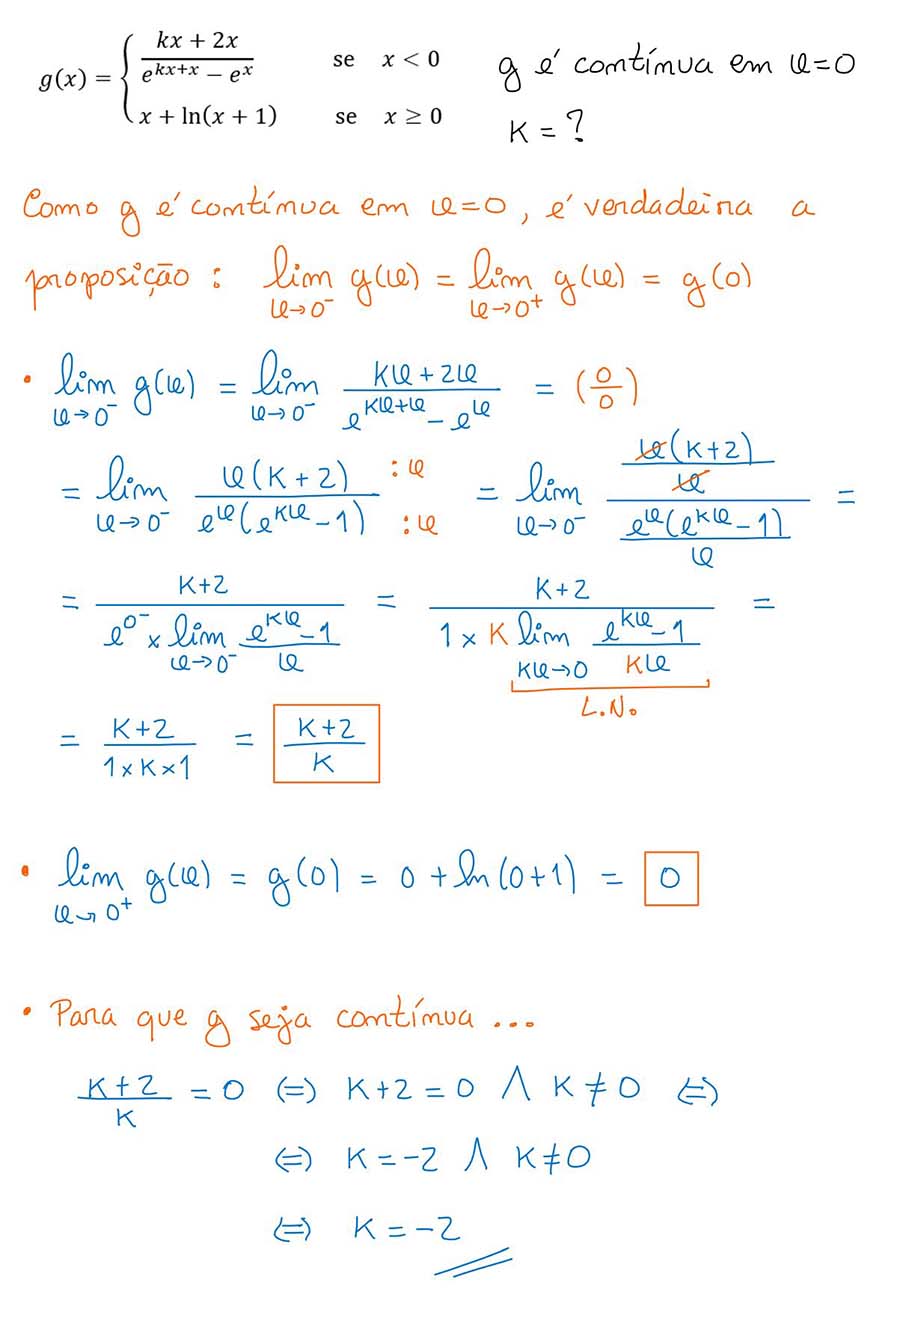 g(x) = { (kx + 2x)/(e^(kx+x) − e^x) se x < 0
x + ln(x + 1) se x ≥ 0
g é contínua em x=0
K = ?
Como g é contínua em x=0, é verdadeira a
proposição : lim x→0⁻ g(x) = lim x→0⁺ g(x) = g(0)
• lim x→0⁻ g(x) = lim x→0⁻ (Kx + 2x)/(e^(Kx+x) − e^x) = (0/0)
= lim x→0⁻ (x(K+2))/(e^x(e^(Kx) − 1)) :x :x = lim x→0⁻ (x(K+2)/x)/(e^x(e^(Kx) − 1)/x) =
= (K+2)/(e^(0⁻) × lim x→0⁻ (e^(Kx) − 1)/x) = (K+2)/(1 × K lim Kx→0 (e^(Kx) − 1)/(Kx)) =
L.N.
= (K+2)/(1×K×1) = (K+2)/K
• lim x→0⁺ g(x) = g(0) = 0 + ln(0+1) = 0
• Para que g seja contínua ...
(K+2)/K = 0 (=) K+2 = 0 ∧ K ≠ 0 (=)
(=) K = −2 ∧ K ≠ 0
(=) K = −2